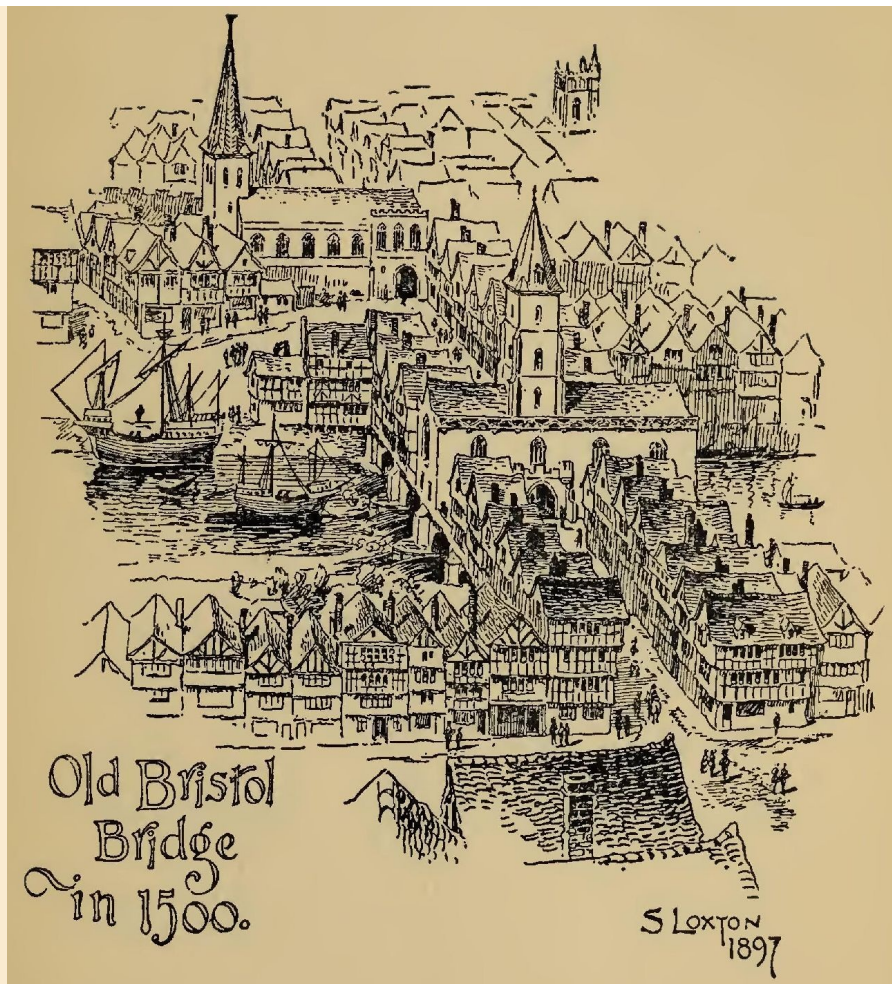 Old Bristol
Bridge
in 1500.
S LOXTON
1897